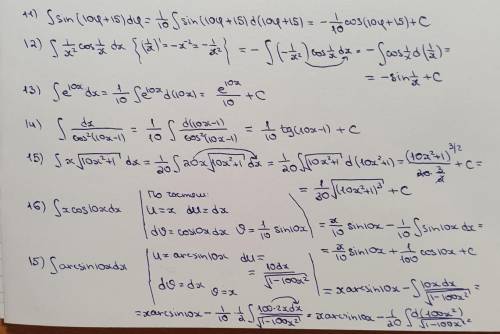 11) ∫sin(10φ+15)dφ = 1/10 ∫sin(10φ+15)d(10φ+15) = -1/10 cos(10φ+15) + C
12) ∫ 1/x² cos 1/x dx {(1/x)' = -x⁻² = -1/x²} = -∫(-1/x²) cos 1/x dx = -∫cos 1/x d(1/x) =
= -sin 1/x + C
13) ∫e^(10x)dx = 1/10 ∫e^(10x)d(10x) = e^(10x)/10 + C
14) ∫ dx/cos²(10x-1) = 1/10 ∫ d(10x-1)/cos²(10x-1) = 1/10 tg(10x-1) + C
15) ∫x√(10x²+1) dx = 1/20 ∫20x√(10x²+1) dx = 1/20 ∫√(10x²+1) d(10x²+1) = (10x²+1)^(3/2)/(20·3/2) + C =
= 1/30 √(10x²+1)³ + C
16) ∫x cos10x dx | По частям:
u=x du=dx
dv=cos10x dx v=1/10 sin10x | = x/10 sin10x - 1/10 ∫sin10x dx =
= x/10 sin10x + 1/100 cos10x + C
15) ∫arcsin10x dx | u=arcsin10x du= = 10dx/√(1-100x²)
dv=dx v=x | = x arcsin10x - ∫ 10x dx/√(1-100x²) =
= x arcsin10x - 1/10 · 1/2 ∫ 100·2x dx/√(1-100x²) = x arcsin10x - 1/20 ∫ d(100x²)/√(1-100x²) =